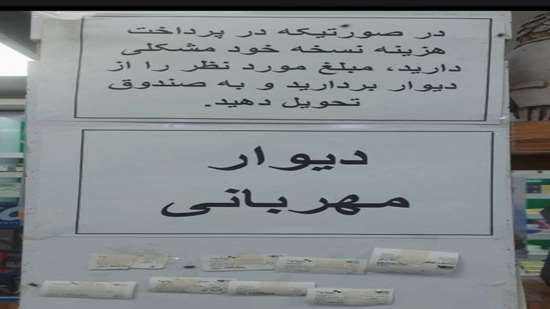 در صورتیکه در پرداخت
هزینه نسخه خود مشکلی
دارید، مبلغ مورد نظر را از
دیوار بردارید و به صندوق
تحویل دهید.
دیوار
مهربانی